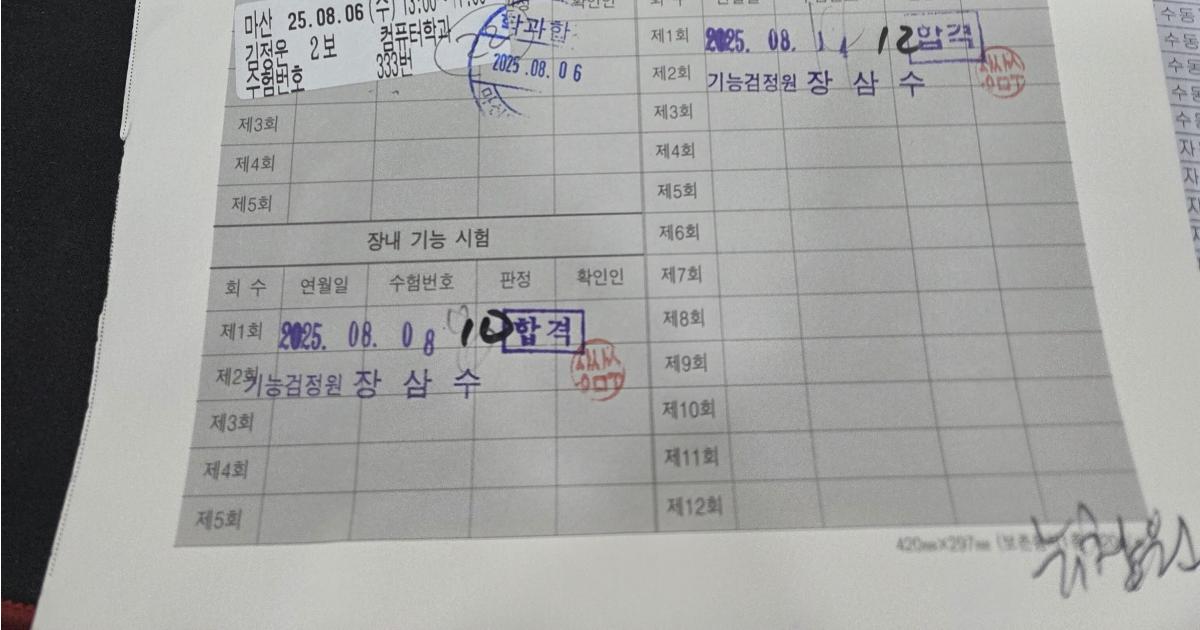 마산 25.08.06 (수) 13:00
김정운 2보 컴퓨터학과
수험번호 333번
학과합
2025.08.06
제3회
제4회
제5회
장내 기능 시험
회 수 연월일 수험번호 판정 확인인
제1회 2025. 08. 08 10 합격
제2회 기능검정원 장 삼 수
제3회
제4회
제5회
제1회 2025. 08. 11 12 합격
제2회 기능검정원 장 삼 수
제3회
제4회
제5회
제6회
제7회
제8회
제9회
제10회
제11회
제12회
420㎜×297㎜
수동
수동
수동
수동
수동